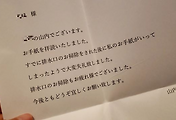 様
の山内でございます。
お手紙を拝読いたしました。
すでに排水口のお掃除をされた後に私のお手紙がいって
しまったようで大変失礼致しました。
排水口のお掃除もお疲れ様でございました。
今後ともどうぞ宜しくお願い致します。